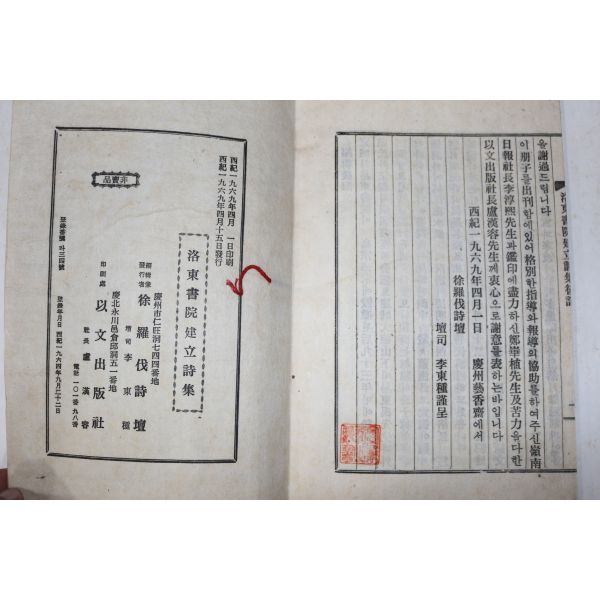 洛東書院建立詩集卷終
을謝過드립니다
이册子를出刊함에있어格別한指導와報導의協助를하여주신嶺南
日報社長李淳熙先生과鑑印에盡力하신鄭華植先生및苦力을다한
以文出版社長盧漢容先生께衷心으로謝意를表하는바입니다
西紀一九六九年四月一日 慶州藝香齋에서
徐羅伐詩壇
壇司 李東種謹呈
西紀一九六九年四月 一日印刷
西紀一九六九年四月十五日發行
洛東書院建立詩集
慶州市仁旺洞七四四番地
編輯兼
發行者 徐羅伐詩壇
壇司 李東種
慶北永川邑倉邱洞五一番地
印刷處 以文出版社
社長 盧漢容
電話 一〇一番 九八番
登錄年月日 西紀一九六四年九月二十二日
登錄番號 라三四號
非賣品